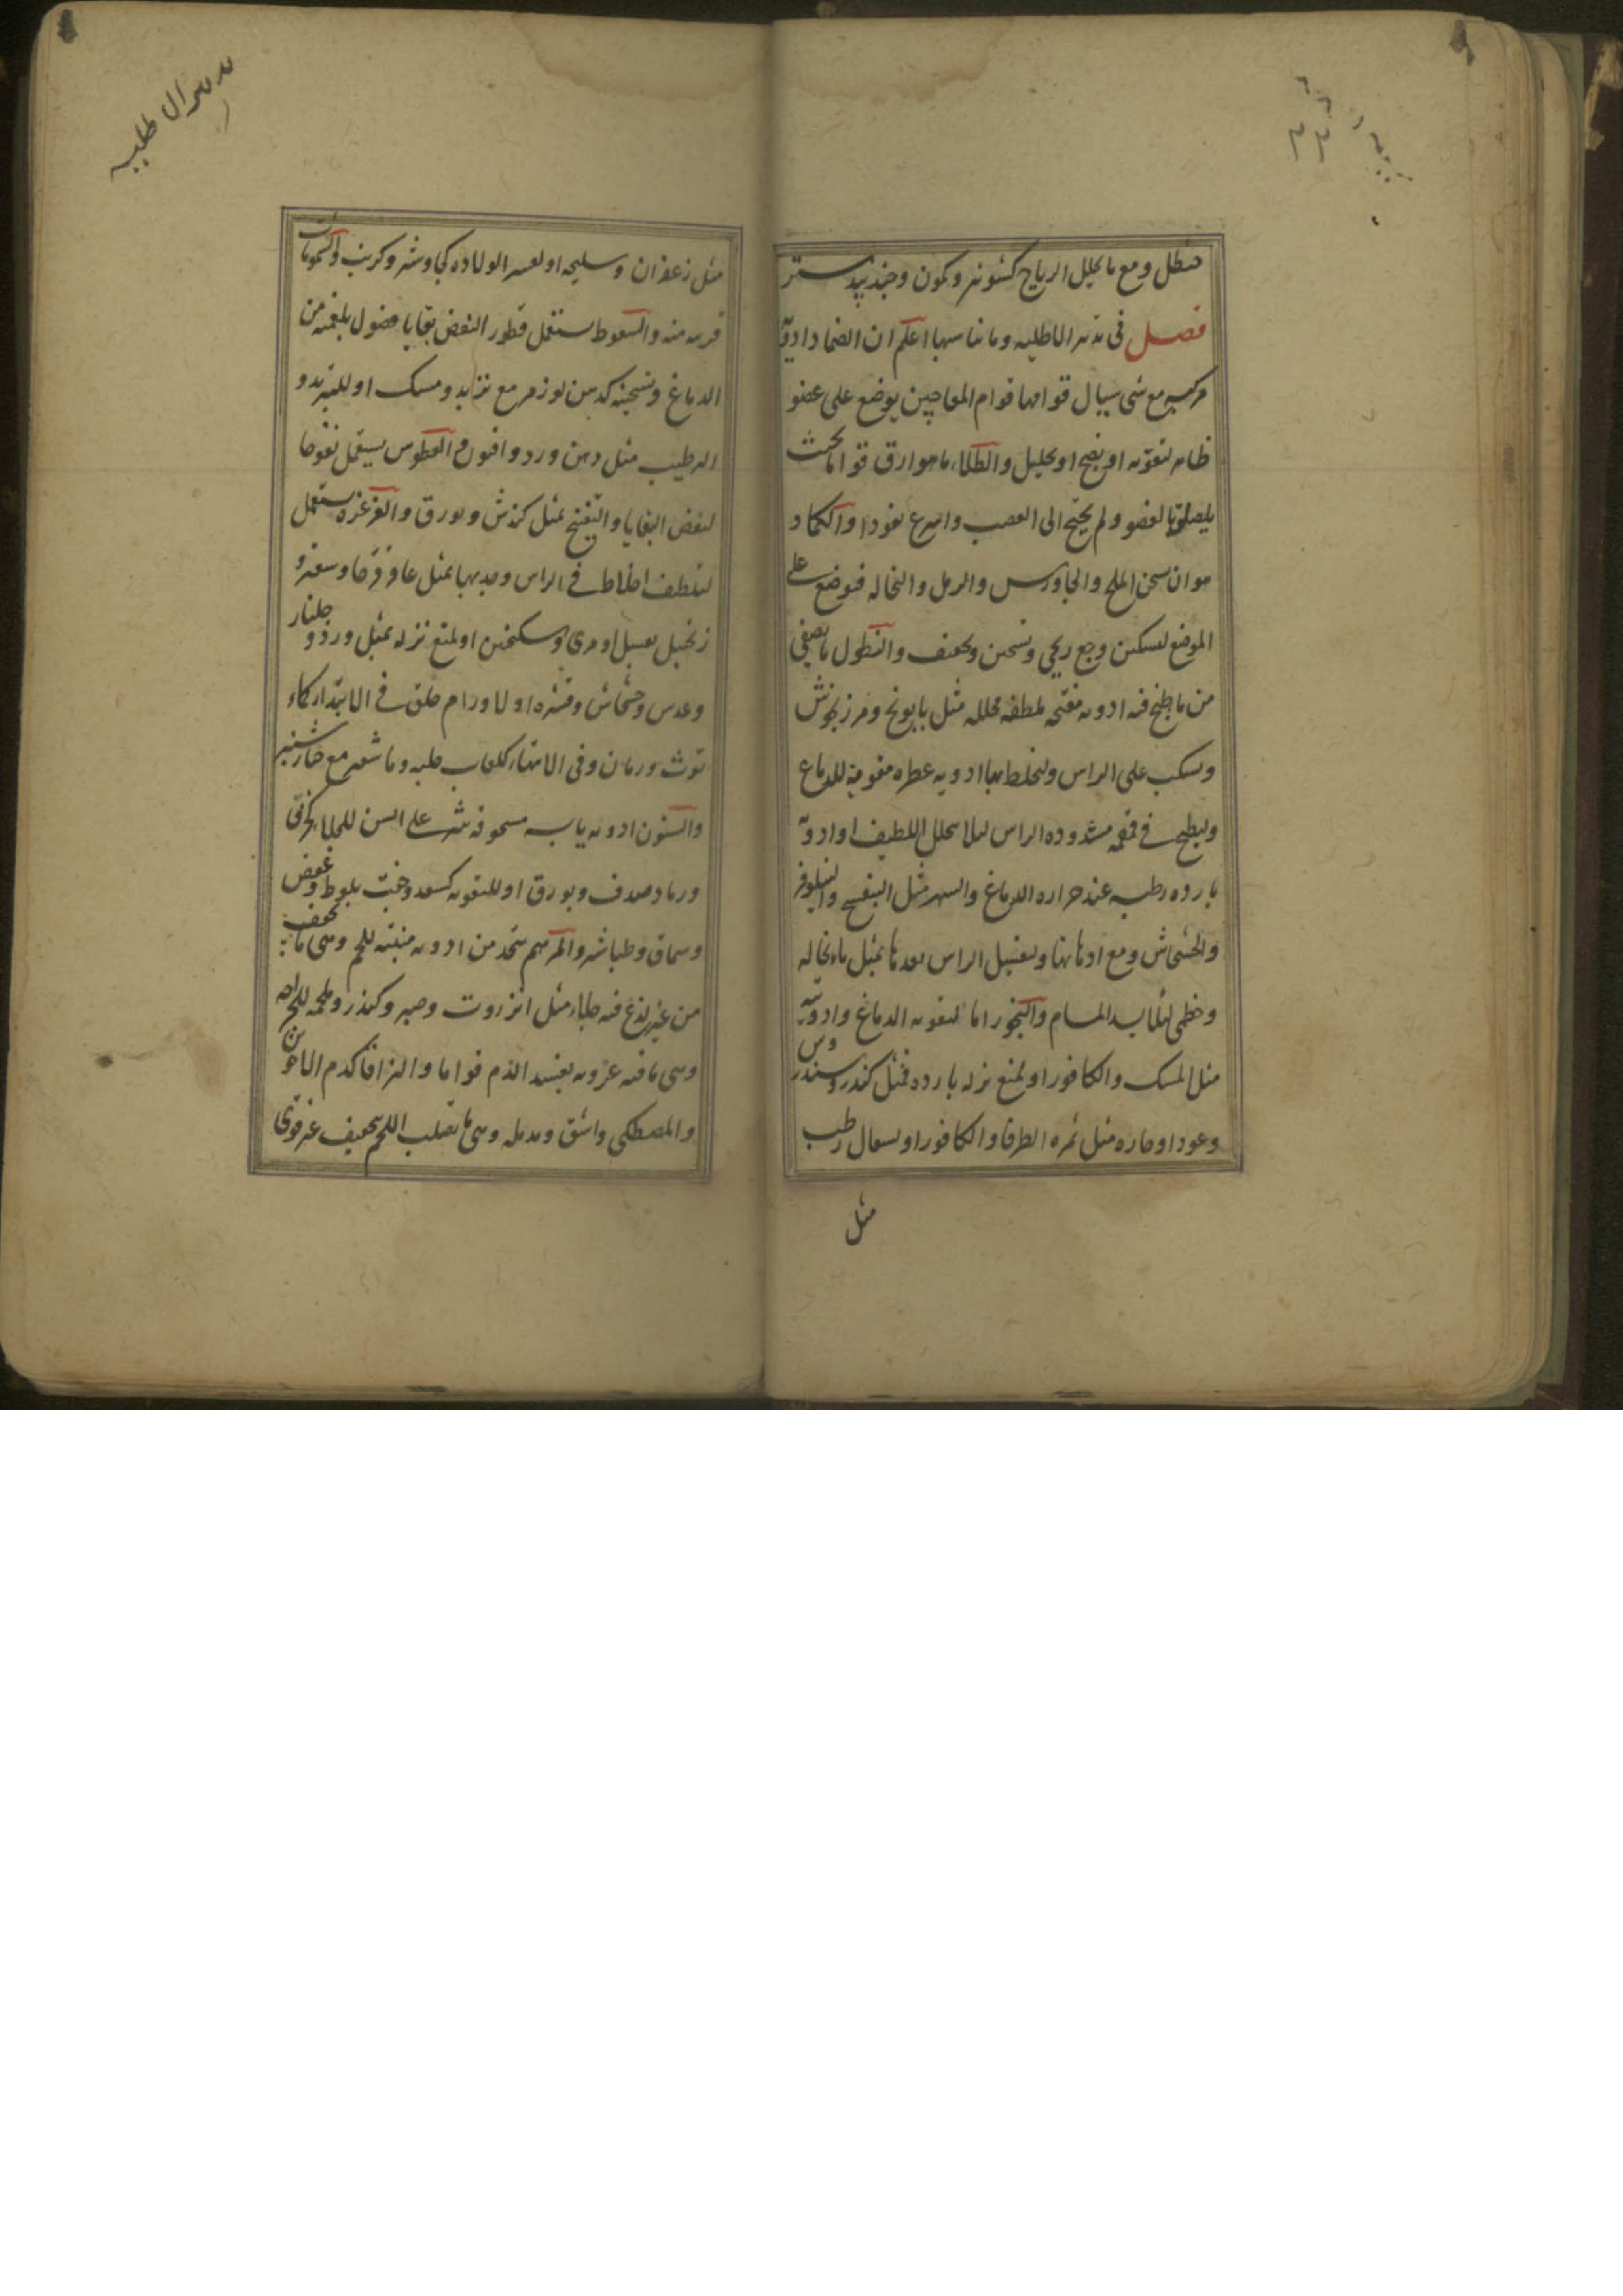 حنظل ومع ما يحلل الرياح كشونيز وكمون وجندبيدستر
فصل في تدبير الاطليه وما يناسبها اعلم ان الضماد ادوية
مركبه مع شي سيال قوامها قوام المعاجين يوضع على عضو
ظاهر لتقويه او نضج او تحليل والطلاء ما هو ارق قواما بحيث
يلصق بالعضو ولم يحتج الى العصب واسرع نفوذا والكماد
هو ان يسخن الملح والجاورس والرمل والنخاله فيوضع على
الموضع لتسكين وجع ريحي وتسخين وتجفيف والنطول ما يصفى
من ما طبخ فيه ادويه مفتحه ملطفه محلله مثل بابونج ومرزنجوش
ويسكب على الراس وليخلط بها ادويه عطره مقويه للدماغ
وليطبخ في قمقمه مشدوده الراس لئلا يتحلل اللطيف او ادوية
بارده رطبه عند حراره الدماغ والسهر مثل البنفسج والنيلوفر
والخشخاش ومع ادهانها وليغسل الراس بعدها بمثل ماء نخاله
وخطمى لئلا يسد المسام والبخور اما لتقويه الدماغ وادويته
مثل المسك والكافور او لمنع نزله بارده فمثل كندر وسندروس
وعود او حاره مثل ثمره الطرفا والكافور او لسعال رطب
مثل
مثل زعفران وسليخه او لعسر الولاده كجاوشير وكبريت والشمومات
قريبه منه والسعوط يستعمل قطور النفض بقايا فضول بلغميه من
الدماغ وتسخينه كدهن لوز مر مع ومسك او للتبريد و
الترطيب مثل دهن ورد وافيون والعطوس يستعمل نفوخا
لنفض البقايا والتفتيح بمثل كندش وبورق والغرغره يستعمل
لتلطف اخلاط في الراس وجذبها بمثل عاقرقرحا وسعتر و
زنجبيل بعسل او مرى وسكنجبين او لمنع نزله بمثل ورد وجلنار
وعدس وخشخاش وقشره او لاورام حلق في الابتداء كماء
توث ورمان وفي الانتهاء كلعاب حلبه وما شعير مع خيارشنبر
والسنون ادويه يابسه مسحوقه ينثر على السن للجلاء كخزفي
ورماد صدف وبورق او للتقويه كسعد وخبث بلوط وعفص
وسماق وطباشير والمرهم يتخذ من ادويه منبته للحم وهى ما يجفف
من غير لذع فيه جلاء مثل انزروت وصبر وكندر وملحمه للجراحه
وهى ما فيه غرويه يفيد الدم قواما والتزاقا كدم الاخوين
والمصطكى واشق ومدمله وهى ما تصلب اللحم بتجفيف غير قوى